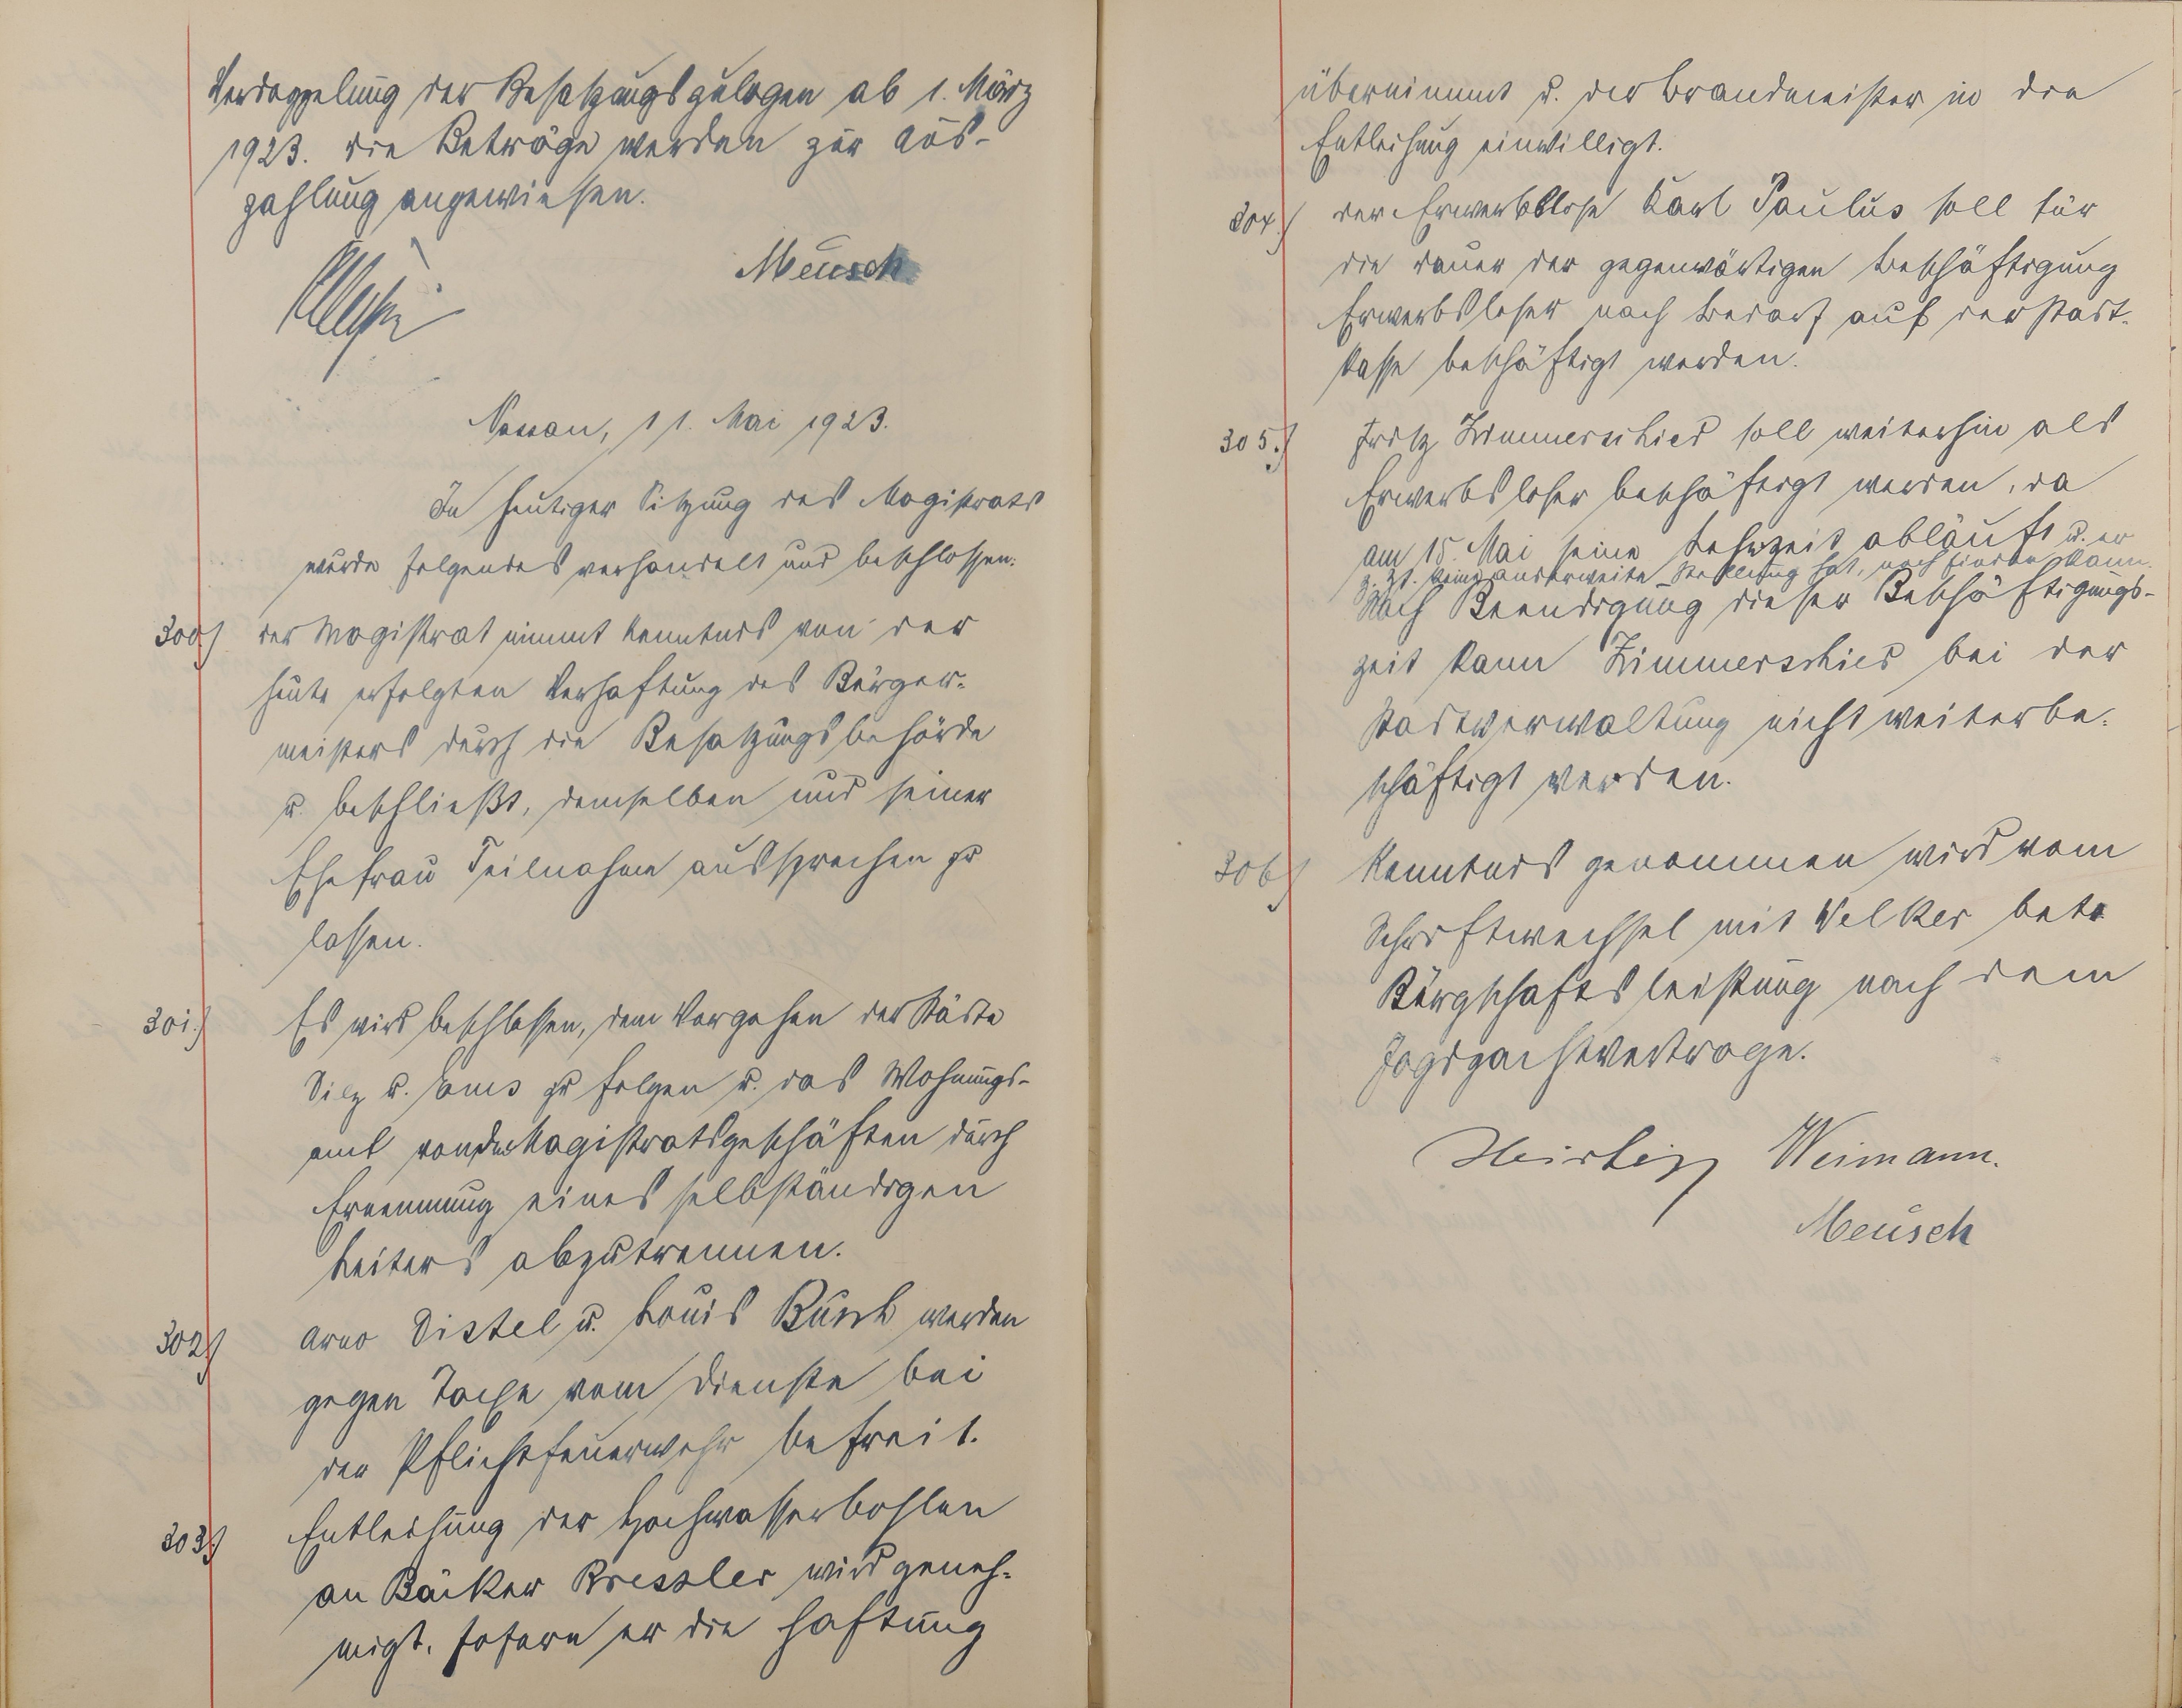 Verdoppelung der Besatzungszulagen ab 1. März
1923. die Beträge werden zur Aus-
zahlung angewiesen.
Meusch
Nassau, 11. Mai 1923.
In heutiger Sitzung des Magistrats
wurde folgendes verhandelt und beschlossen:
300.) der Magistrat nimmt Kenntnis von der
heute erfolgten Verhaftung des Bürger-
meisters durch die Besatzungsbehörde
u. beschließt, demselben und seiner
Ehefrau Teilnahme aussprechen zu
lassen.
301.) Es wird beschlossen, dem Vorgehen der Städte
Diez u. Ems zu folgen u. das Wohnungs-
amt von den Magistratsgeschäften durch
Ernennung eines selbständigen
Leiters abzutrennen.
302.) Arno Distel u. Louis Busch werden
gegen Taxe vom Dienste bei
der Pflichtfeuerwehr befreit.
303.) Entleihung der Hochwasserbohlen
an Bäcker Bressler wird geneh-
migt, sofern er die Haftung
übernimmt u. der Brandmeister in die
Entleihung einwilligt.
304.) der Erwerbslose Karl Paulus soll für
die Dauer der gegenwärtigen Beschäftigung
Erwerbsloser nach Bedarf auf der Stadt-
kasse beschäftigt werden.
305.) Fritz Zimmerschied soll weiterhin als
Erwerbsloser beschäftigt werden, da
am 15. Mai seine Lehrzeit abläuft u. er
z. Zt. keine anderweite Stellung hat, noch finden kann.
Nach Beendigung dieser Beschäftigungs-
zeit kann Zimmerschied bei der
Stadtverwaltung nicht weiterbe-
schäftigt werden.
306.) Kenntnis genommen wird vom
Schriftwechsel mit Velker betr.
Bürgschaftsleistung nach dem
Jagdpachtvertrage.
Weimann.
Meusch